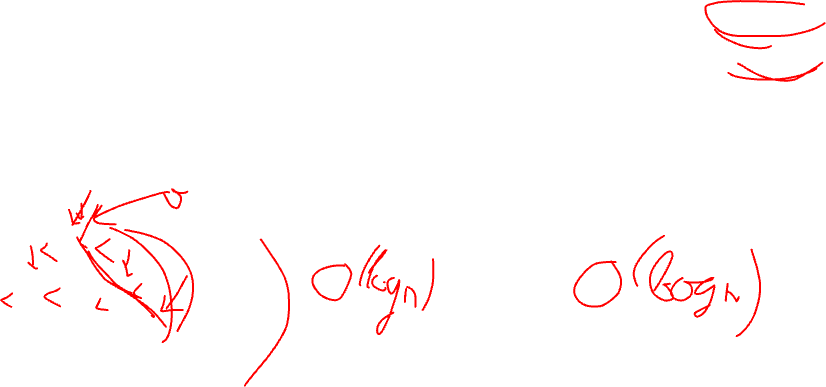 O(log n) O(log n)